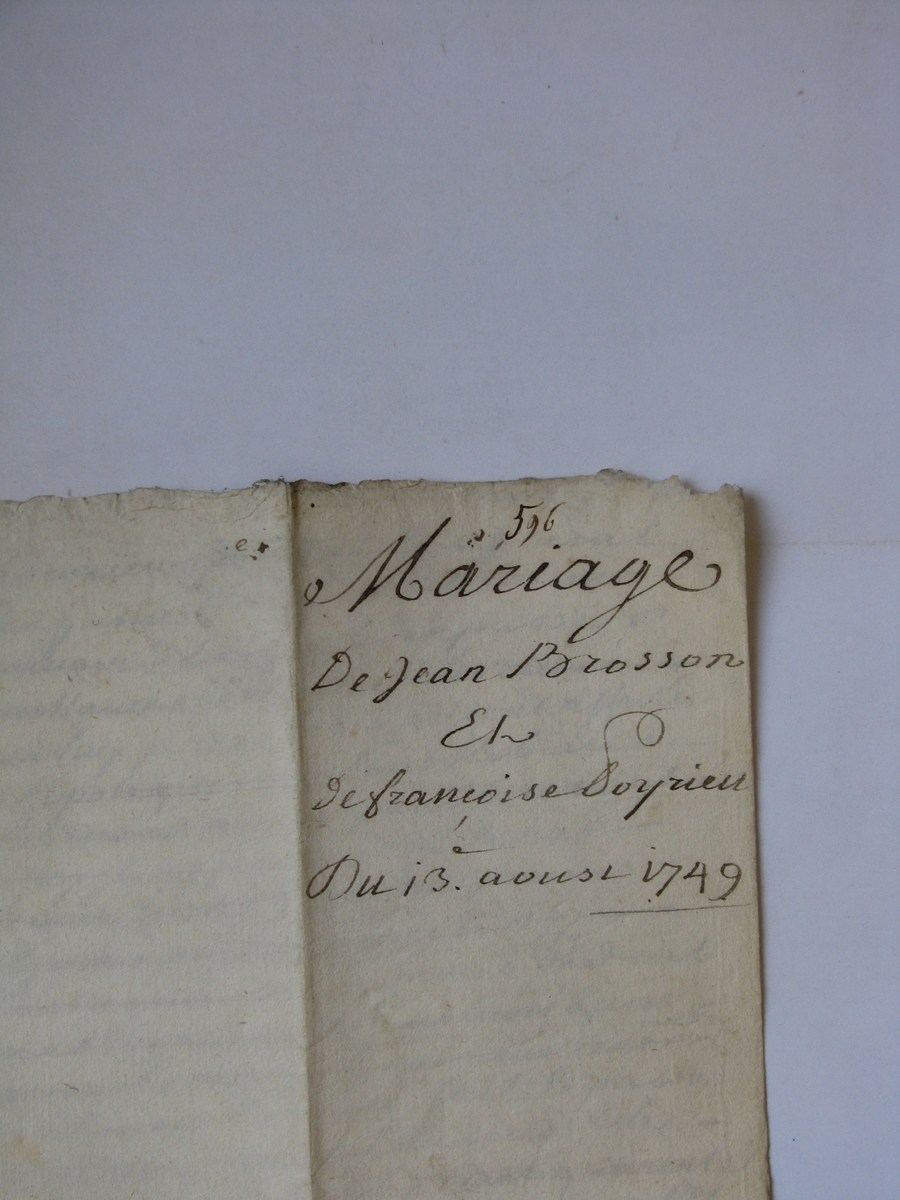 596
Mariage
De Jean Brosson
Et
de françoise Doyrieu
Du 13.e aoust 1749